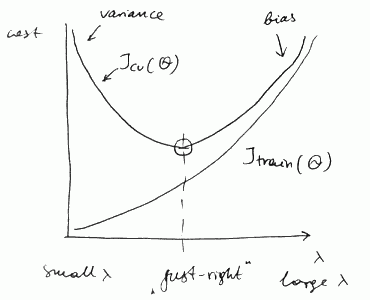 variance
bias
cost
Jcv(Θ)
Jtrain(Θ)
λ
small λ
„just-right“
large λ